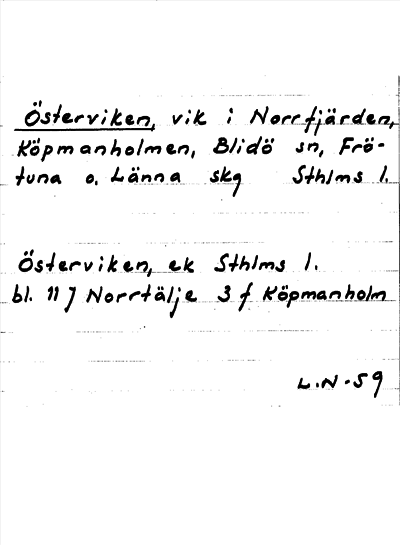 Österviken, vik i Norrfjärden,
Köpmanholmen, Blidö sn, Frö-
tuna o. Länna skg Sthlms l.
Österviken, ek Sthlms l.
bl. 11 J Norrtälje 3 f Köpmanholm
L.N-59